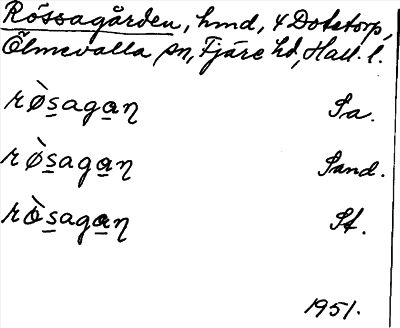 Rössagården, hmd, 4 Dotetorp,
Ölmevalla sn, Fjäre hd, Hall. l.
rø̀s̲aga̲ŋ Sa.
rø̀s̲aga̲ŋ Sand.
rò̀s̲aga̲ŋ St.
1951.